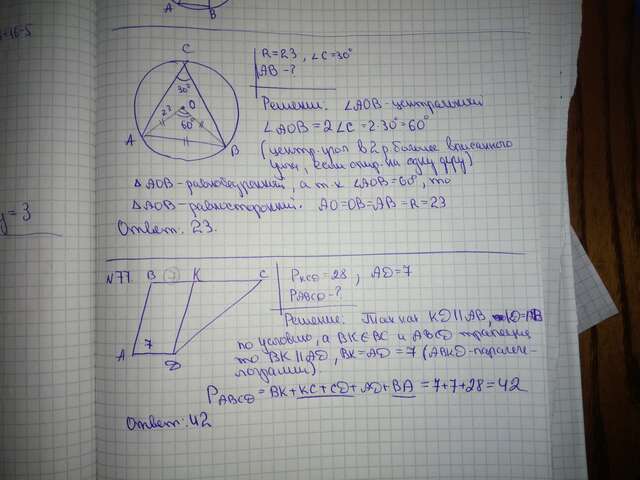 y = 3
A
B
A
B
C
O
23
30°
60°
R = 23, ∠C = 30°
AB - ?
Решение: ∠AOB - центральный
∠AOB = 2∠C = 2·30° = 60°
(центр. угол в 2 р больше вписанного
угла, если опир на одну дугу)
△AOB - равнобедренный, а т.к ∠AOB = 60°, то
△AOB - равносторонний. AO = OB = AB = R = 23
Ответ: 23.
№77.
B
K
C
A
7
D
P KCD = 28, AD = 7
P ABCD - ?
Решение: Так как KD || AB, KD = AB
по условию, а BK ∈ BC и ABCD трапеция
то BK || AD, BK = AD = 7 (ABKD - паралле-
лограмм)
P ABCD = BK + KC + CD + AD + BA = 7 + 7 + 28 = 42
Ответ: 42